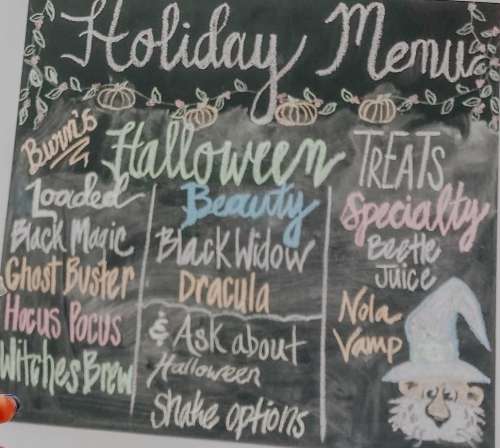 Holiday Menu
Burn's Halloween TREATS
Loaded
Black Magic
Ghost Buster
Hocus Pocus
Witches Brew
Beauty
Black Widow
Dracula
& Ask about
Halloween
Shake options
Specialty
Beetle
Juice
Nola
Vamp